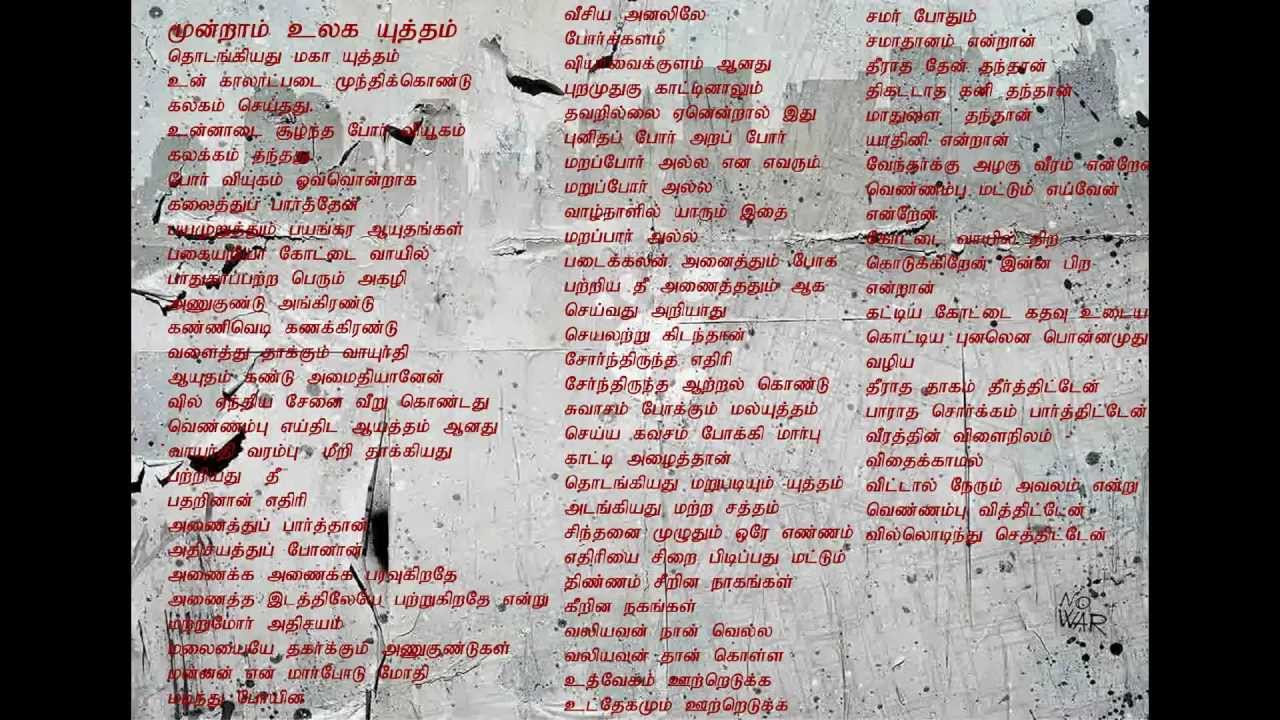 மூன்றாம் உலக யுத்தம்
தொடங்கியது மகா யுத்தம்
உன் காலாட்படை முந்திக்கொண்டு
கலகம் செய்தது.
உன்னாடை சூழ்ந்த போர் வியூகம்
கலக்கம் தந்தது
போர் வியுகம் ஒவ்வொன்றாக
களைத்துப் பார்த்தேன்
பயமுறுத்தும் பயங்கர ஆயுதங்கள்
கோட்டை வாயில்
பாதுகாப்பற்ற பெரும் அகழி
அணுகுண்டு அங்கிரண்டு
கண்ணிவெடி கணக்கிரண்டு
வளைத்து தாக்கும் வாயுர்தி
ஆயுதம் கண்டு அமைதியானேன்
வில் ஏந்திய சேனை வீறு கொண்டது
வெண்ணம்பு எய்திட ஆயத்தம் ஆனது
வாயுர்தி வரம்பு மீறி தாக்கியது
பற்றியது தீ
பதறினான் எதிரி
அணைத்துப் பார்த்தான்
அதிசயத்துப் போனான்
அணைக்க அணைக்க பரவுகிறதே
அணைத்த இடத்திலேயே பற்றுகிறதே என்று
மற்றுமோர் அதிசயம்
மலையையே தகர்க்கும் அணுகுண்டுகள்
மன்னன் என் மார்போடு மோதி
மடிந்து போயின
வீசிய அனலிலே
போர்க்களம்
வியர்வைக்குளம் ஆனது
புறமுதுகு காட்டினாலும்
தவறில்லை ஏனென்றால் இது
புனிதப் போர் அறப் போர்
மறப்போர் அல்ல என எவரும்
மறுப்போர் அல்ல
வாழ்நாளில் யாரும் இதை
மறப்பார் அல்ல
படைக்கலன் அனைத்தும் போக
பற்றிய தீ அணைத்ததும் ஆக
செய்வது அறியாது
செயலற்று கிடந்தான்
சோர்ந்திருந்த எதிரி
சேர்ந்திருந்த ஆற்றல் கொண்டு
சுவாசம் போக்கும் மல்யுத்தம்
செய்ய கவசம் போக்கி மார்பு
காட்டி அழைத்தான்
தொடங்கியது மறுபடியும் யுத்தம்
அடங்கியது மற்ற சத்தம்
சிந்தனை முழுதும் ஒரே எண்ணம்
எதிரியை சிறை பிடிப்பது மட்டும்
திண்ணம் சீறின நாகங்கள்
கீறின நகங்கள்
வலியவன் நான் வெல்ல
வலியவன் தான் கொள்ள
உத்வேகம் ஊற்றெடுக்க
உட்தேகமும் ஊற்றெடுக்க
சமர் போதும்
சமாதானம் என்றான்
தீராத தேன் தந்தான்
திகட்டாத கனி தந்தான்
மாதுளை தந்தான்
யாதினி என்றான்
வேந்தர்க்கு அழகு வீரம் என்றேன்
வெண்ணம்பு மட்டும் எய்வேன்
என்றேன்
கோட்டை வாயில் திற
கொடுக்கிறேன் இன்ன பிற
என்றான்
கட்டிய கோட்டை கதவு உடைய
கொட்டிய புனலென பொன்னமுது
வழிய
தீராத தாகம் தீர்த்திட்டேன்
பாராத சொர்க்கம் பார்த்திட்டேன்
வீரத்தின் விளைநிலம்
விதைக்காமல்
விட்டால் நேரும் அவலம் என்று
வெண்ணம்பு வித்திட்டேன்
வில்லொடிந்து செத்திட்டேன்
NO
WAR